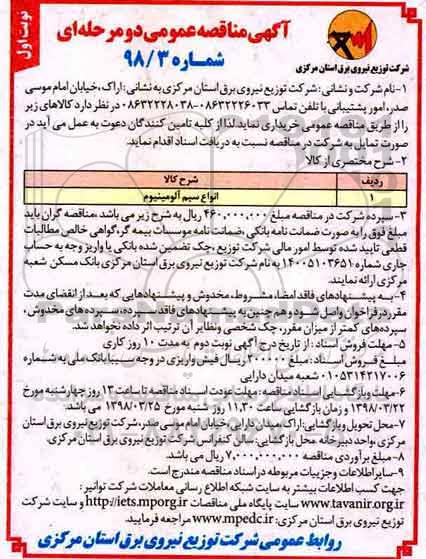 نوبت اول
آگهی مناقصه عمومی دو مرحله ای
شماره ۹۸/۳
شرکت توزیع نیروی برق استان مرکزی
۱-نام شرکت و نشانی : شرکت توزیع نیروی برق استان مرکزی به نشانی : اراک،خیابان امام موسی
صدر، امور پشتیبانی با تلفن تماس ۰۸۶۳۲۲۲۶۰۳۳-۰۸۶۳۲۲۲۸۰۳۸ در نظر دارد کالاهای زیر
را از طریق مناقصه عمومی خریداری نماید.لذا از کلیه تامین کنندگان دعوت به عمل می آید در
صورت تمایل به شرکت در مناقصه نسبت به دریافت اسناد اقدام نمایند.
۲- شرح مختصری از کالا
ردیف شرح کالا
۱ انواع سیم آلومینیوم
۳-سپرده شرکت در مناقصه مبلغ ۴۶۰,۰۰۰,۰۰۰ ریال به شرح زیر می باشد ،مناقصه گران باید
مبلغ فوق را به صورت ضمانت نامه بانکی ،ضمانت نامه موسسات بیمه گر،گواهی خالص مطالبات
قطعی تایید شده توسط امور مالی شرکت توزیع ،چک تضمین شده بانکی یا واریز وجه به حساب
جاری شماره ۱۴۰۰۵۱۰۳۶۵۱ به نام شرکت توزیع نیروی برق استان مرکزی بانک مسکن شعبه
مرکزی ارائه نمایند.
۴-به پیشنهادهای فاقد امضا، مشروط، مخدوش و پیشنهادهایی که بعد از انقضای مدت
مقرر در فراخوان واصل شود و هم چنین به پیشنهادهای فاقد سپرده، سپرده های مخدوش ،
سپرده های کمتر از میزان مقرر، چک شخصی و نظایر آن ترتیب اثر داده نخواهد شد.
۵- مهلت فروش اسناد : از تاریخ درج آگهی نوبت دوم به مدت ۱۰ روز کاری
مبلغ فروش اسناد : مبلغ ۳۰۰۰۰۰ ریال فیش واریزی در وجه سیبا بانک ملی به شماره
۰۱۰۵۳۱۴۲۱۷۰۰۶ شعبه میدان دارایی
۶-مهلت و بازگشایی اسناد مناقصه : مهلت عودت اسناد مناقصه تا ساعت ۱۳ روز چهارشنبه مورخ
۱۳۹۸/۰۳/۲۲ و زمان بازگشایی ساعت ۱۱,۳۰ روز شنبه مورخ ۱۳۹۸/۰۳/۲۵ می باشد.
۷-محل تحویل و بازگشایی:اراک، میدان دارایی، خیابان امام موسی صدر، شرکت توزیع نیروی برق استان
مرکزی ،واحد دبیرخانه. محل بازگشایی: سالن کنفرانس شرکت توزیع نیروی برق استان مرکزی.
۸-مبلغ برآوردی مناقصه ۷,۰۰۰,۰۰۰,۰۰۰ ریال می باشد.
۹-سایر اطلاعات و جزییات مربوطه در اسناد مناقصه مندرج است.
جهت کسب اطلاعات بیشتر به سایت شبکه اطلاع رسانی معاملات شرکت توانیر :
www.tavanir.org.ir سایت پایگاه ملی مناقصات http://iets.mporg.ir و سایت شرکت
توزیع نیروی برق استان مرکزی: www.mpedc.ir مراجعه فرمایید.
روابط عمومی شرکت توزیع نیروی برق استان مرکزی